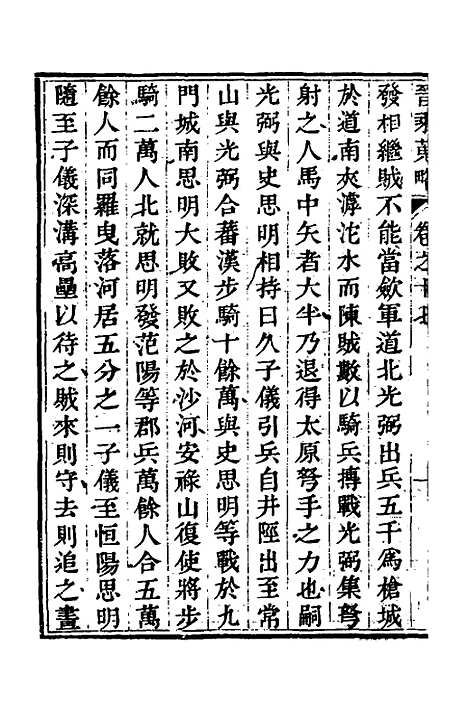 晉乘蒐略 卷之十五
發相繼賊不能當歛軍道北光弼出兵五千爲槍城
於道南夾滹沱水而陳賊數以騎兵搏戰光弼集弩
射之人馬中矢者大半乃退得太原弩手之力也嗣
光弼與史思明相持日久子儀引兵自井陘出至常
山與光弼合蕃漢步騎十餘萬與史思明等戰於九
門城南思明大敗又敗之於沙河安祿山復使將步
騎二萬人北就思明發范陽等郡兵萬餘人合五萬
餘人而同羅曳落河居五分之一子儀至恒陽思明
隨至子儀深溝高壘以待之賊來則守去則追之晝